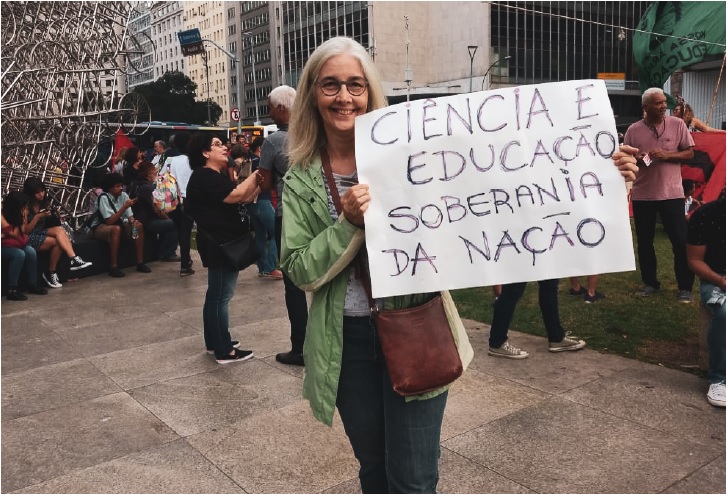 CIÊNCIA E
EDUCAÇÃO
SOBERANIA
DA NAÇÃO